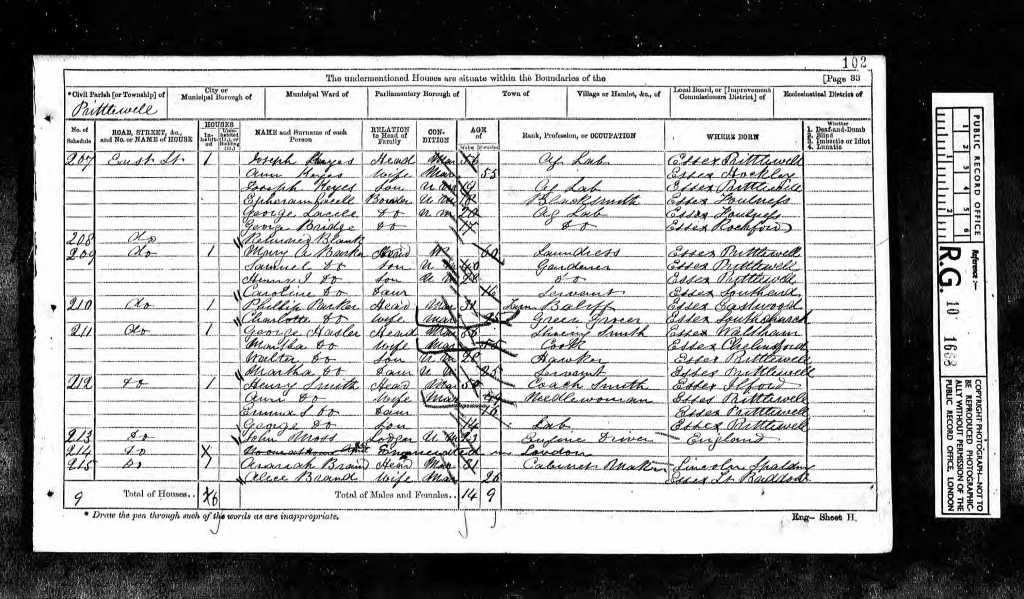 102
The undermentioned Houses are situate within the Boundaries of the
[Page 33
*Civil Parish [or Township] of
City or Municipal Borough of
Municipal Ward of
Parliamentary Borough of
Town of
Village or Hamlet, &c., of
Local Board, or [Improvement Commissioners District] of
Ecclesiastical District of
Prittlewell
No. of Schedule
ROAD, STREET, &c., and No. or NAME of HOUSE
HOUSES
NAME and Surname of each Person
RELATION to Head of Family
CONDITION
AGE of
Rank, Profession, or OCCUPATION
WHERE BORN
Whether
1. Deaf-and-Dumb
2. Blind
3. Imbecile or Idiot
4. Lunatic
207 East St 1 Joseph Keyes Head Mar Ag Lab Essex Prittlewell
Ann Keyes Wife Mar 55 Essex Hockley
Joseph Keyes Son Un 19 Ag Lab Essex Prittlewell
Boarder Un Blacksmith Essex Foulness
George do Un Ag Lab Essex Foulness
George Bridge do 17 do Essex Rochford
208 do Returned Blank
209 do 1 Mary A Barker Head W 60 Laundress Essex Prittlewell
Samuel do Son Un 40 Gardener Essex Prittlewell
Henry J do Son Un do Essex Prittlewell
Caroline do Daur 16 Servant Essex Southend
210 do 1 Phillip Parker Head Mar 31 Farm Bailiff Essex Eastwood
Charlotte do Wife Mar 25 Green Grocer Essex Southchurch
211 do 1 George Hasler Head Mar Shoeing Smith Essex Walsham
Martha do Wife Mar Cook Essex Chelmsford
Walter do Son Un 20 Hawker Essex Prittlewell
Martha do Daur Un 25 Servant Essex Prittlewell
212 do 1 Henry Smith Head Mar 50 Coach Smith Essex Ilford
Ann do Wife Mar Needlewoman Essex Prittlewell
Emma S do Daur 16 Essex Prittlewell
George do Son 14 Lab Essex Prittlewell
213 do John Moss Lodger Un 23 Engine Driver England
214 do Enumerated in London
215 do 1 Brand Head Mar 31 Cabinet Maker Lincoln Spalding
Alice Brand Wife Mar 26 Essex Lt Baddow
9 Total of Houses.. 6 Total of Males and Females.. 14 9
* Draw the pen through such of the words as are inappropriate.
Eng- Sheet H.
PUBLIC RECORD OFFICE
1 2 3 4 5 6
Reference:-
R.G. 10 1668
COPYRIGHT PHOTOGRAPH-NOT TO BE REPRODUCED PHOTOGRAPHICALLY WITHOUT PERMISSION OF THE PUBLIC RECORD OFFICE, LONDON